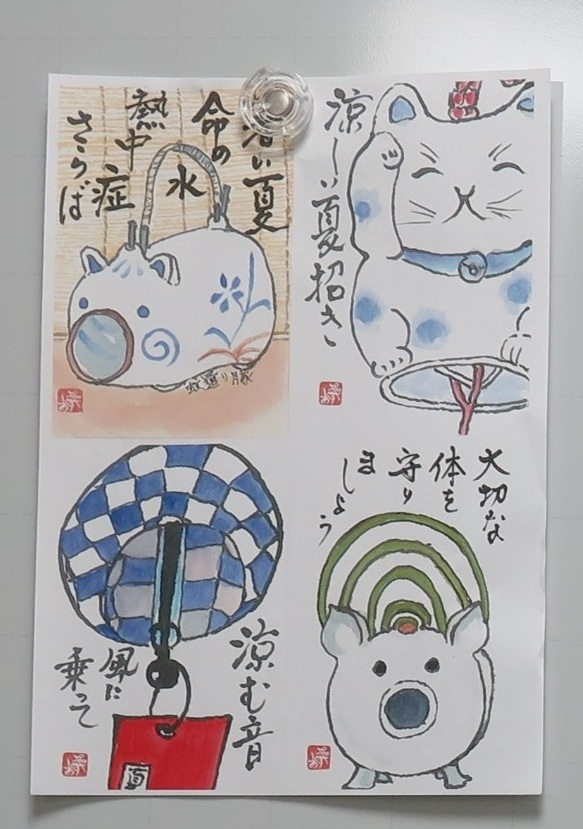 暑い夏
命の
水
熱中
症
さらば
蚊遣り豚
涼しい夏招き
涼む音
風に
乗って
大切な
体を
守り
ま
しょう